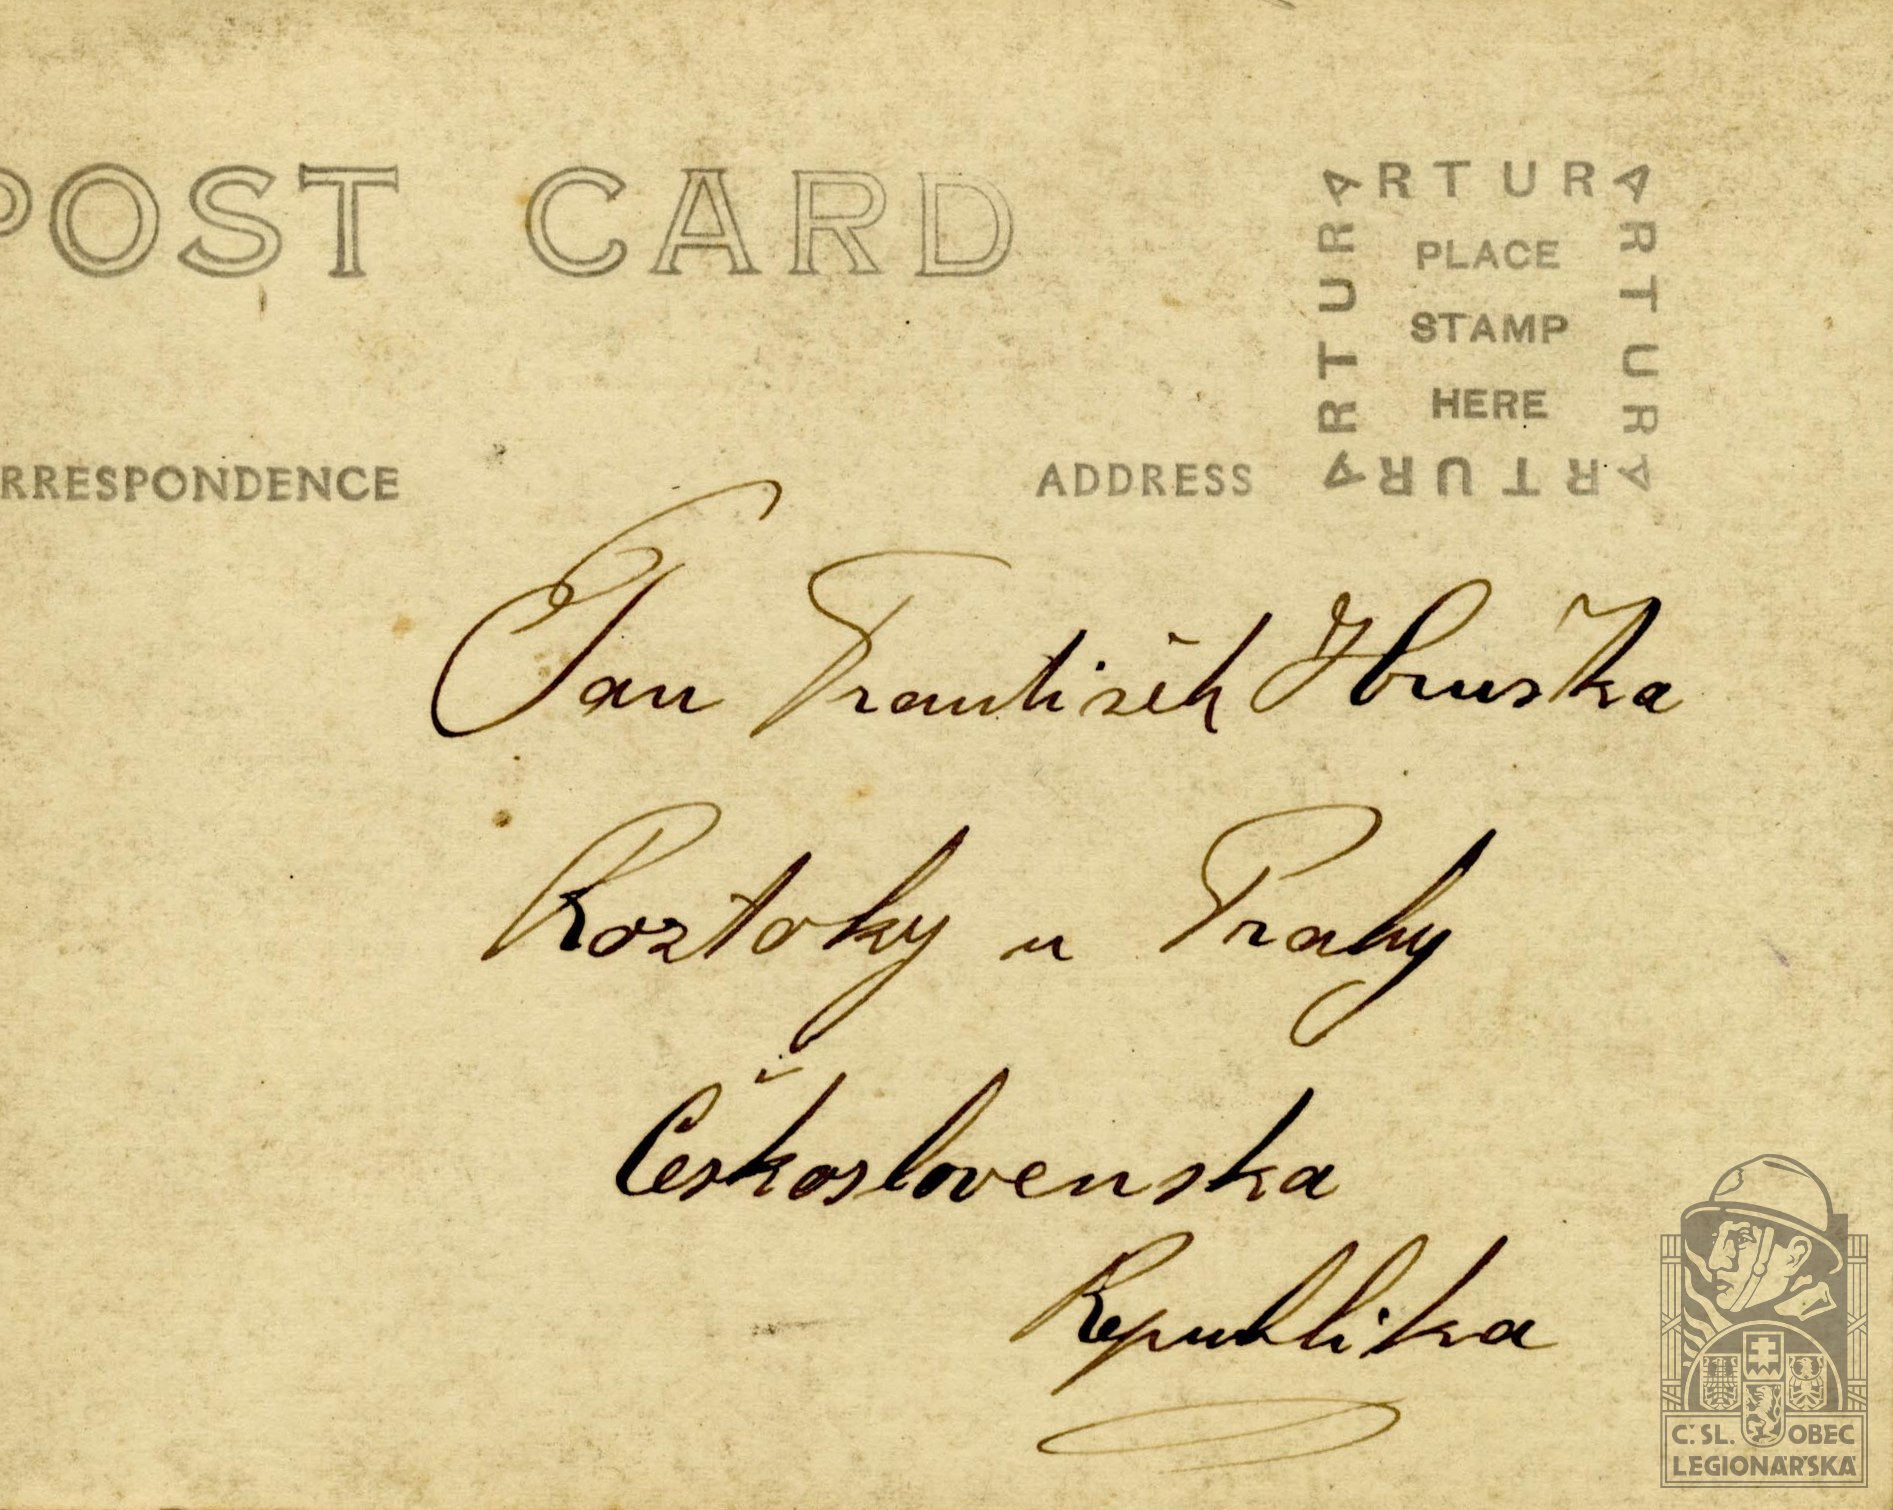 POST CARD
ARTURA
ARTURA
ARTURA
ARTURA
PLACE
STAMP
HERE
RRESPONDENCE
ADDRESS
Jan František Hruška
Roztoky u Prahy
Československa
Republika
Č. SL. OBEC
LEGIONÁŘSKÁ